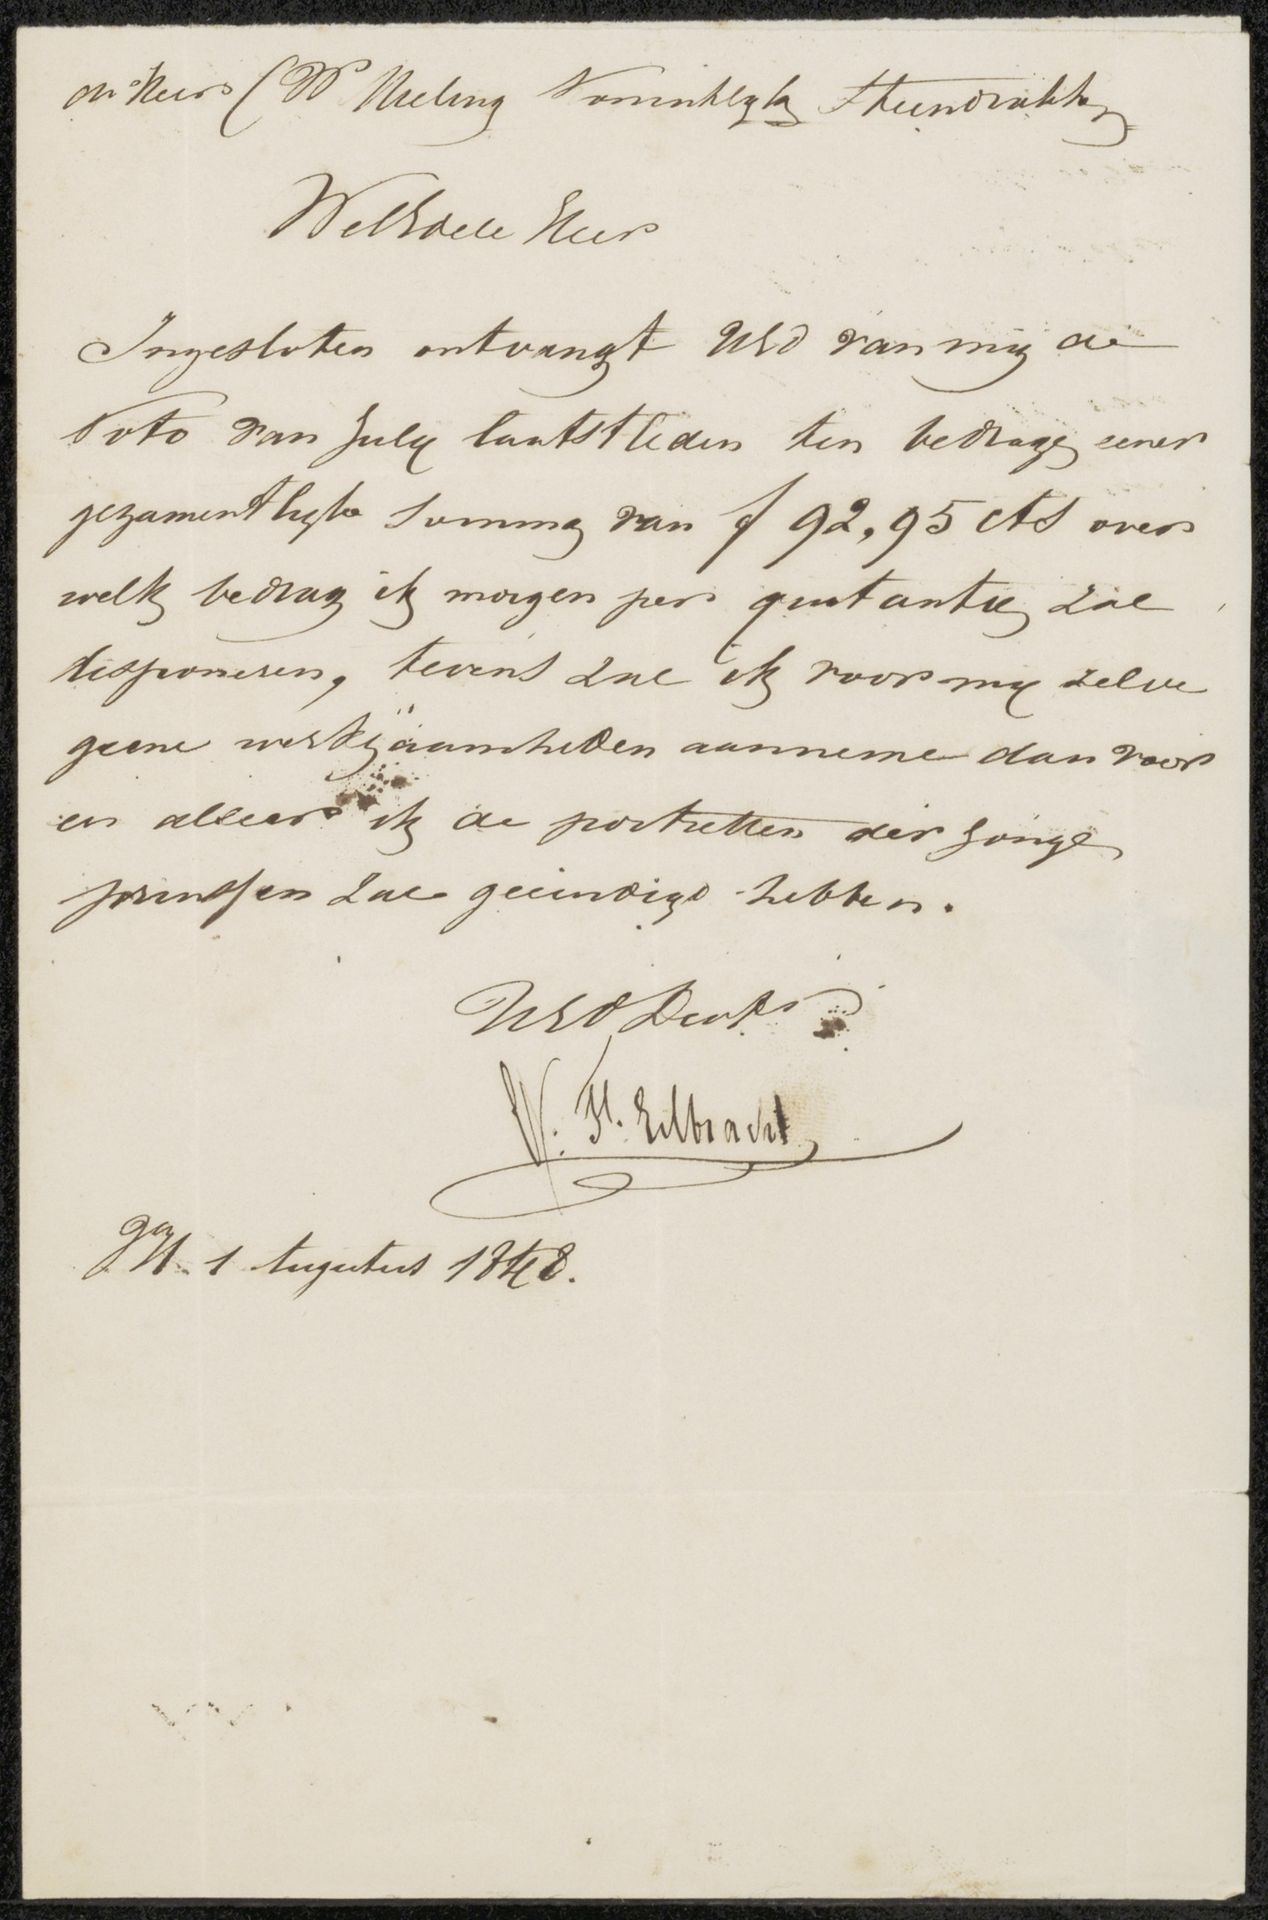 den Heer C W Mieling Koninklyke Steendrukkery
WelEdele Heer
Ingesloten ontvangt UEd van mij de
Nota van July laatstleden ten bedrage eener
gezamentlyke somme van ƒ 92,95 cts over
welk bedrag ik morgen per quitantie zal
disponeren, tevens zal ik voor my zelve
geene werkzaamheden aanneme dan voor
en alleer ik de portretten der jonge
prinssen zal geeindigd hebben.
UEd Dwd
W. F. Eelbracht
1 Augustus 1848.